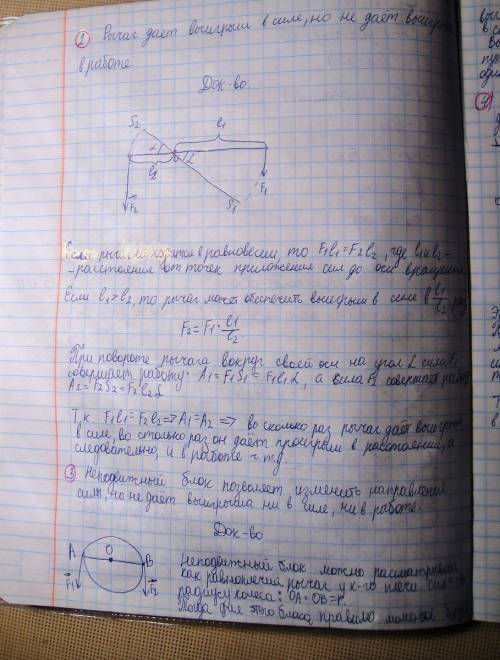 2 Рычаг дает выигрыш в силе, но не даёт выигрыш
в работе.
Док-во.
S2
l1
α
α
l2
F2
S1
F1
Если рычаг находится в равновесии, то F1l1=F2l2, где l1 и l2 -
- расстояния от точек приложения сил до оси вращения
Если l1>l2, то рычаг может обеспечить выигрыш в силе в l1/l2 раз
F2 = F1 · l1/l2
При повороте рычага вокруг своей оси на угол α сила F1
совершает работу: A1 = F1S1 = F1l1α, а сила F2 совершает работу
A2 = F2S2 = F2l2α
Т.к. F1l1=F2l2 => A1=A2 => во сколько раз рычаг даёт выигрыш
в силе, во столько раз он даёт проигрыш в расстоянии, а
следовательно, и в работе ч.т.д.
3 Неподвижный блок позволяет изменить направление
силы, но не дает выигрыша ни в силе, ни в работе.
Док-во
A O B
F1 F2
Неподвижный блок можно рассматривать
как равноплечий рычаг у к-го плечи сил
радиусу колеса: OA=OB=r.
Тогда для этого блока правило моментов